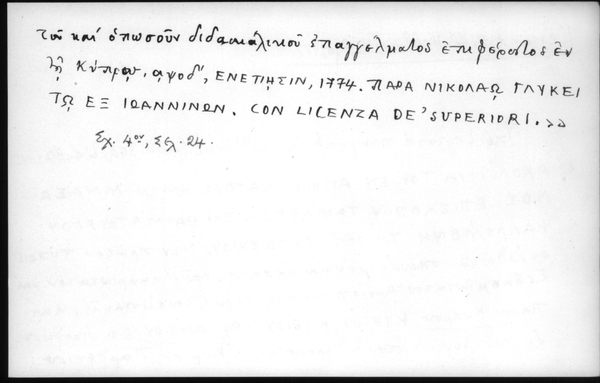 τοῦ καὶ ὁπωσοῦν διδασκαλικοῦ ἐπαγγέλματος ἐπιφέροντος ἐν
τῇ Κύπρῳ, αψοδ', ΕΝΕΤΙΗΣΙΝ, 1774. ΠΑΡΑ ΝΙΚΟΛΑῼ ΓΛΥΚΕΙ
Τῼ ΕΞ ΙΩΑΝΝΙΝΩΝ. CON LICENZA DE' SUPERIORI.»
Σχ. 4ον, Σελ. 24.